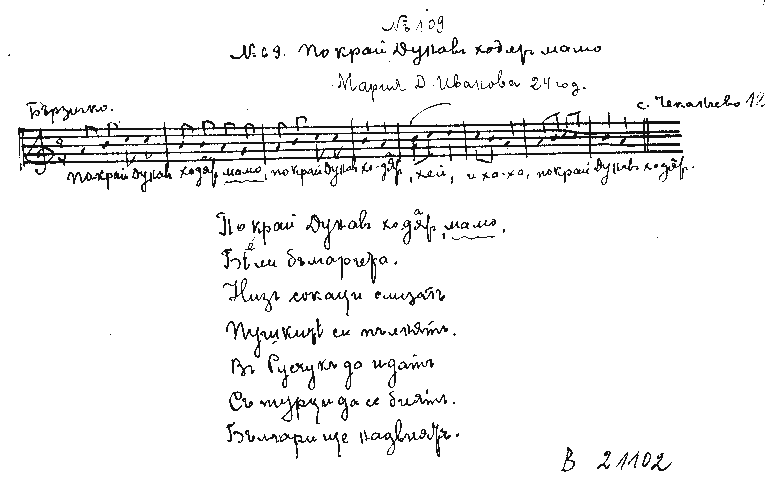 № 109
№ 69. По край Дунавъ ходяр мамо
Мария Д. Иванова 24 год.
Бързичко.
с. Чепанчево 12
По край Дунавъ ходяр, мамо, по край Дунавъ хо-дяр, хей, и ха-ха, по край Дунавъ ходяр.
По край Дунавъ ходяр, мамо,
Бѣли
Низъ сокаци слизатъ
Пушкитѣ си пълнятъ.
Въ Русчукъ да идатъ
Съ турци да се биятъ.
Българи ще надвиятъ.
В 21102